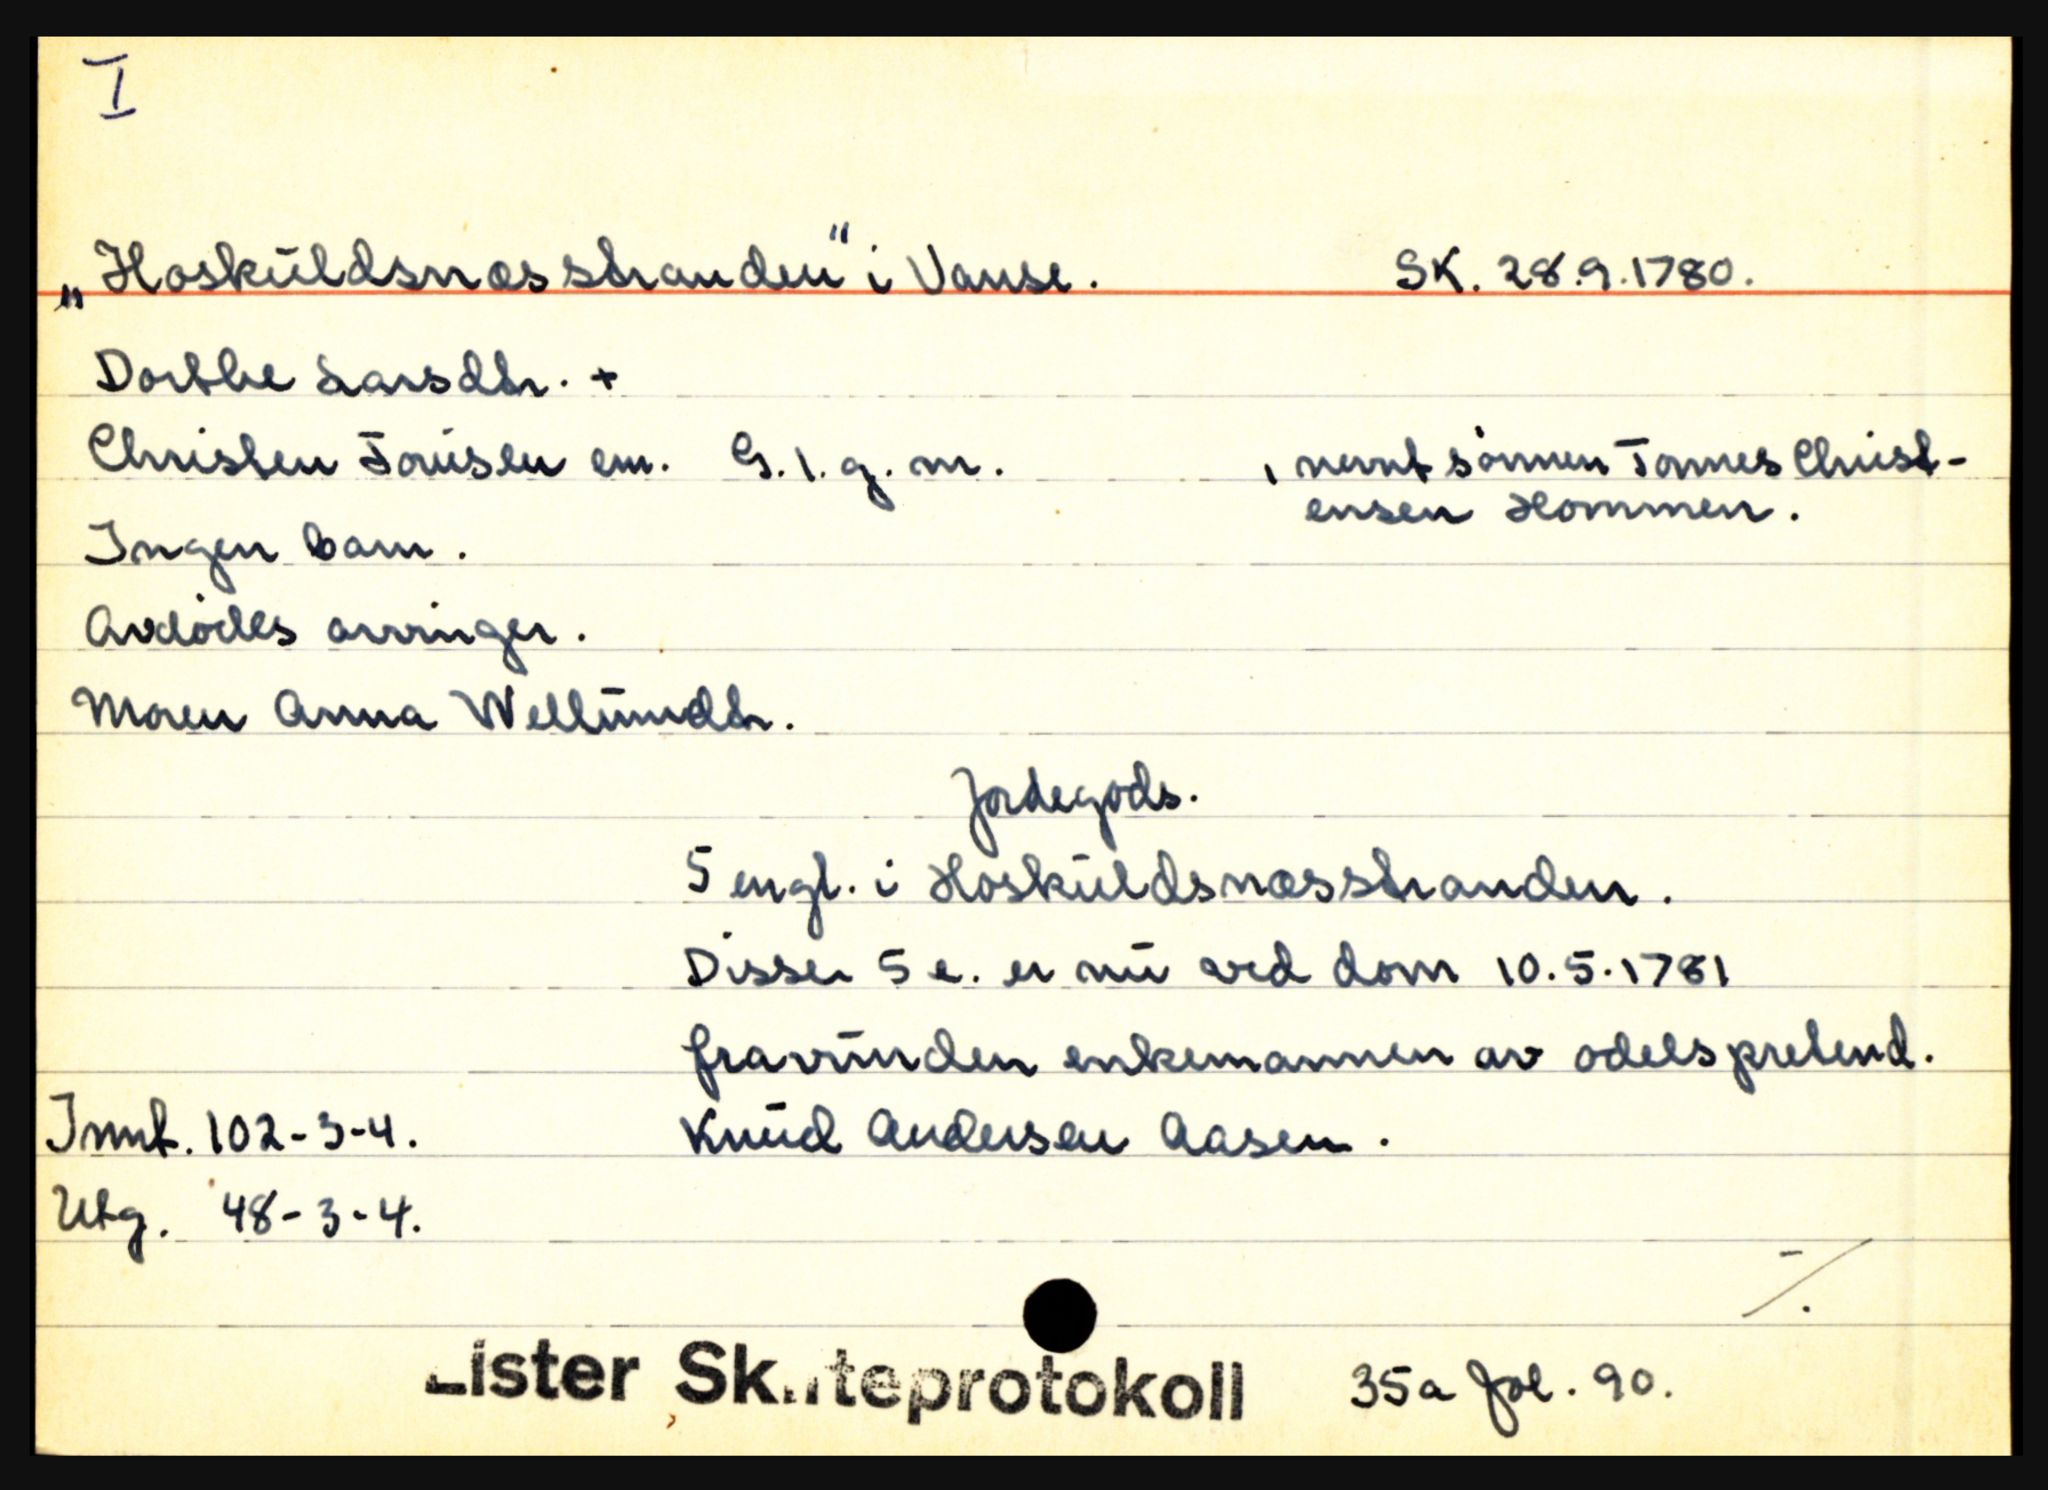 I
„Hoskuldsnæsstranden" i Vanse. SK. 28.9.1780.
Dorthe Larsdtr. +
Christen Tonisen em. G. 1. g. m. , nevnt sønnen Tonnes Christ-
ensen Hommen.
Ingen barn.
Avdødes arvinger.
Moren Anna Wellumdtr.
Jordegods.
5 engl. i Hoskuldsnæsstranden.
Disse 5 e. er nu ved dom 10.5.1781
fravunden enkemannen av odelspretend.
Innt. 102-3-4. Knud Andersen Aasen.
Utg. 48-3-4.
Lister Skifteprotokoll 35a fol. 90.